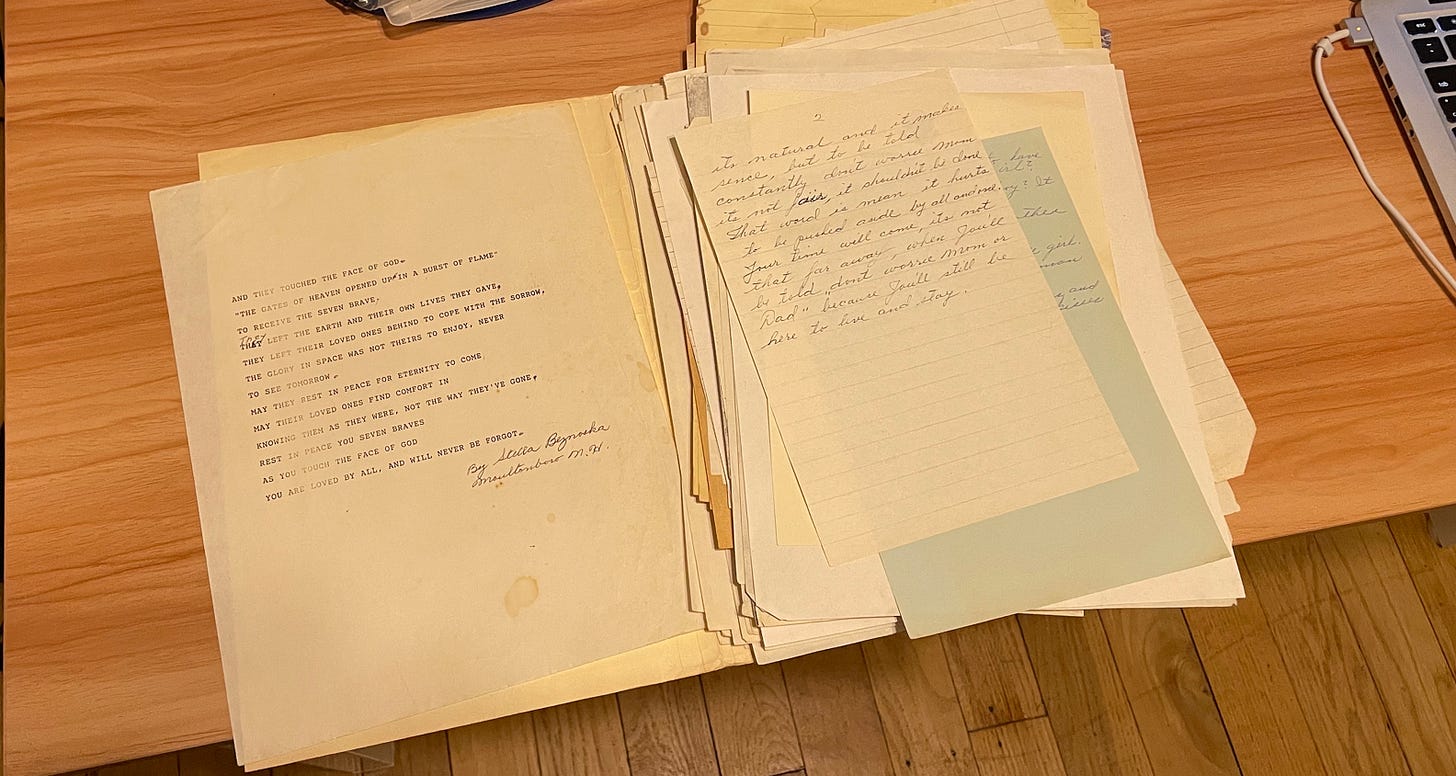 AND THEY TOUCHED THE FACE OF GOD.
"THE GATES OF HEAVEN OPENED UP IN A BURST OF FLAME"
TO RECEIVE THE SEVEN BRAVE.
THEY LEFT THE EARTH AND THEIR OWN LIVES THEY GAVE,
THEY LEFT THEIR LOVED ONES BEHIND TO COPE WITH THE SORROW,
THE GLORY IN SPACE WAS NOT THEIRS TO ENJOY, NEVER
TO SEE TOMORROW.
MAY THEY REST IN PEACE FOR ETERNITY TO COME
MAY THEIR LOVED ONES FIND COMFORT IN
KNOWING THEM AS THEY WERE, NOT THE WAY THEY'VE GONE,
REST IN PEACE YOU SEVEN BRAVES
AS YOU TOUCH THE FACE OF GOD
YOU ARE LOVED BY ALL, AND WILL NEVER BE FORGOT.
By Stella Beznoska
Moultonboro N.H.
2
Its natural and it makes
sence, but to be told
constantly don't worree Mom
its not fair, it shouldn't be done
That word is mean it hurts
to be pushed aside by all and one.
Your time will come, its not
that far away, when You'll
be told "dont worree Mom or
Dad" because You'll still be
here to live and stay.
have
girl?
It
then
girl.
and
esc
tab